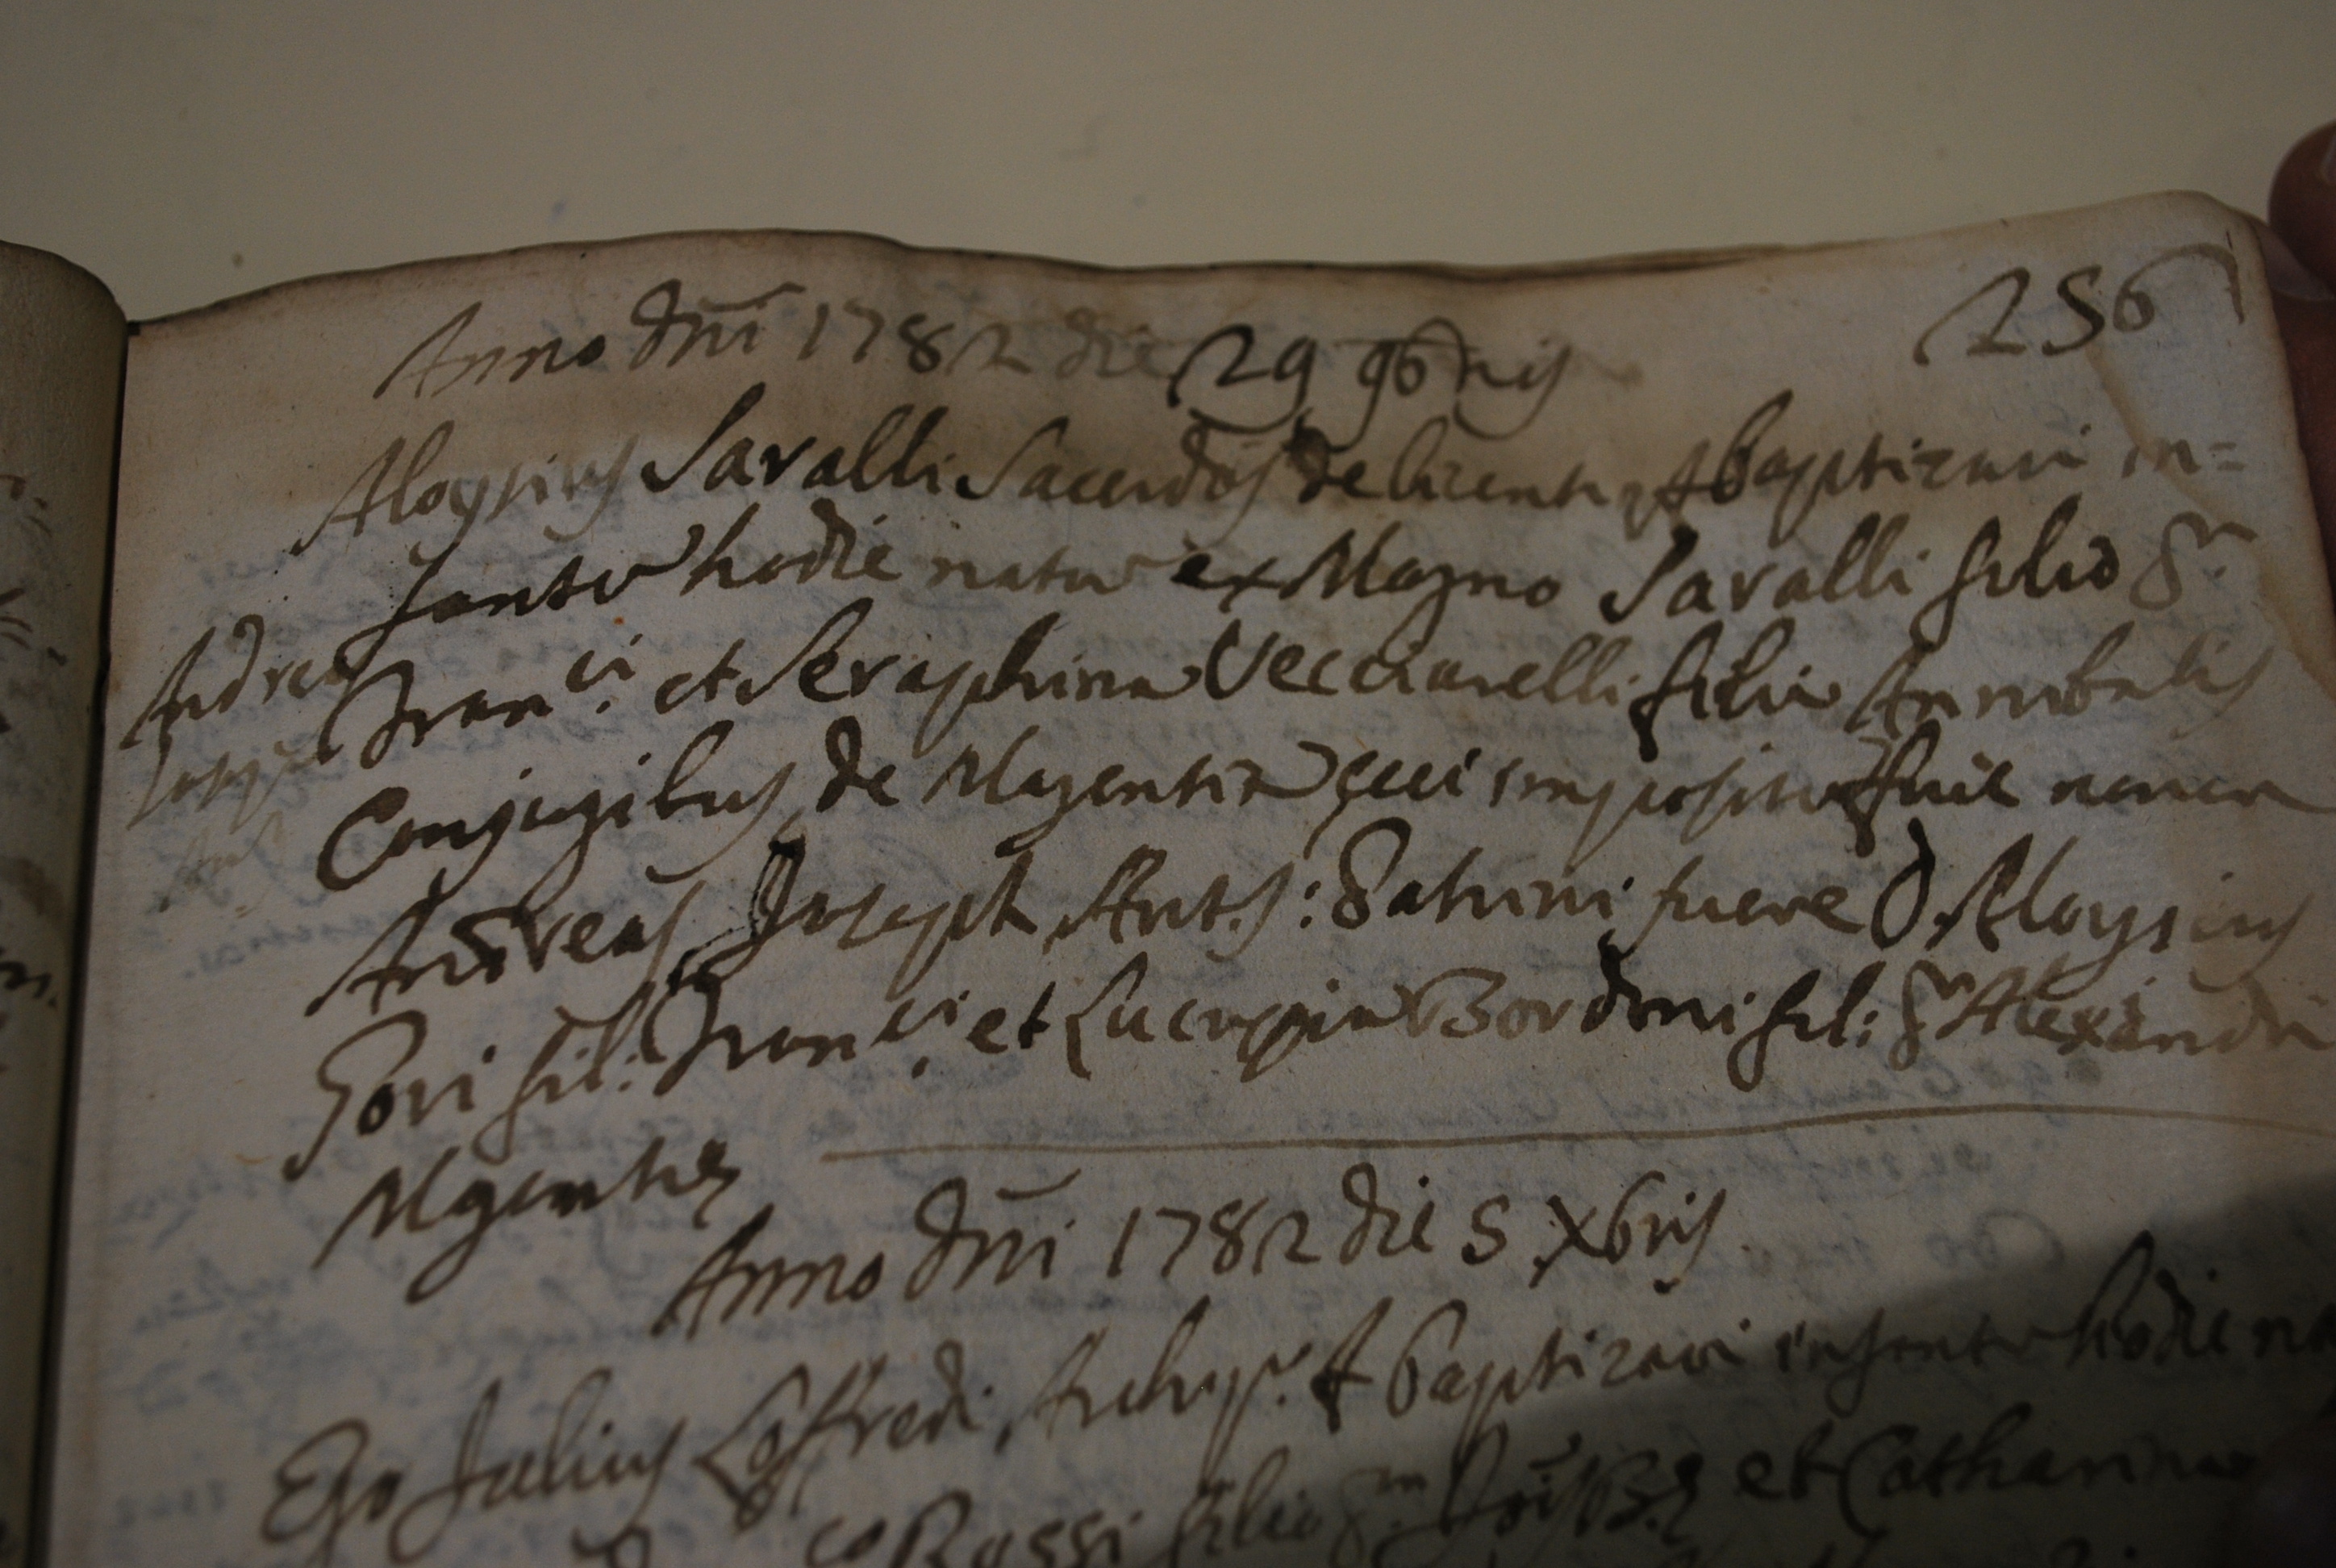 256
Anno Dñi 1782 die 29 9bris
Aloysius Savalli Sacerdos de licentia Abaptizavi in=
fante hodie natu ex Magno Savalli filio qm
Andreas
Franci. et Seraphina Vecciarelli filia Annibalis
Joseph
Conjugibus de Magentia cui impositu fuit nomen
Ant
Andreas Joseph Ant.s: Patrini fuere D. Aloysius
Gori fil: Franci. et Lucrezia Bordoni fil: qm Alexandri
Mgentiæ
Anno Dñi 1782 die 5 Xbris
Ego Julius Loffredi, Archipr. A baptizavi infante hodie na
co Rossi filio qm et Catharina